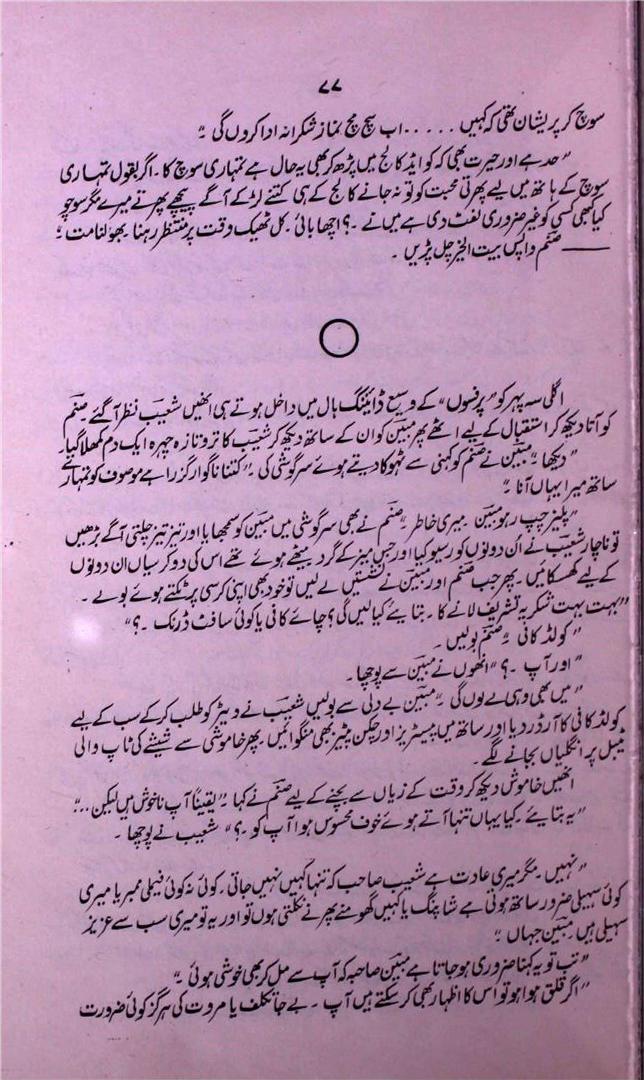 ۷۷
سوچ کر پریشان تھی کہ کہیں ..... اب سچ مچ نماز شکرانہ ادا کروں گی۔"
"حد ہے اور حیرت بھی کہ کو ایڈ کالج میں پڑھ کر بھی یہ حال ہے تمہاری سوچ کا۔ اگر بقول تمہاری
سوچ کے ہاتھ میں لیے پھرتی محبت کو تو نہ جانے کالج کے ہی کتنے لڑکے آگے پیچھے پھرتے میرے مگر سوچو
کیا کبھی کسی کو غیر ضروری لفٹ دی ہے میں نے۔؟ اچھا بائی۔ کل ٹھیک وقت پر منتظر رہنا۔ بھولنا مت۔"
—— صنم واپس بیت الخیر چل پڑیں۔
اگلی سہ پہر کو "پرنسوں" کے وسیع ڈائننگ ہال میں داخل ہوتے ہی انھیں شعیب نظر آگئے۔ صنم
کو آتا دیکھ کر استقبال کے لیے اٹھے پھر مبین کو ان کے ساتھ دیکھ کر شعیب کا تروتازہ چہرہ ایک دم کملا گیا۔
"دیکھا۔" مبین نے صنم کو کہنی سے ٹہوکا دیتے ہوئے سرگوشی کی۔ "کتنا ناگوار گزرا ہے موصوف کو تمہارے
ساتھ میرا یہاں آنا۔"
"پلیز چپ رہو مبین۔ میری خاطر۔" صنم نے بھی سرگوشی میں مبین کو سمجھایا اور تیز تیز چلتی آگے بڑھیں
تو ناچار شعیب نے ان دونوں کو رسیو کیا اور جس میز کے گرد بیٹھے ہوئے تھے اس کی دو کرسیاں ان دونوں
کے لیے کھسکائیں۔ پھر جب صنم اور مبین نے نشستیں لے لیں تو خود بھی اپنی کرسی پر ٹکتے ہوئے بولے۔
"بہت بہت شکریہ تشریف لانے کا۔ بتایئے کیا لیں گی؟ چائے کافی یا کوئی سافٹ ڈرنک۔؟"
"کولڈ کافی۔" صنم بولیں۔
"اور آپ۔؟" انھوں نے مبین سے پوچھا۔
"میں بھی وہی لے لوں گی۔" مبین بے دلی سے بولیں شعیب نے ویٹر کو طلب کر کے سب کے لیے
کولڈ کافی کا آرڈر دیا اور ساتھ میں پیسٹریز اور چکن پیٹیز بھی منگوائیں۔ پھر خاموشی سے شیشے کی ٹاپ والی
ٹیبل پر انگلیاں بجانے لگے۔
انھیں خاموش دیکھ کر وقت کے زیاں سے بچنے کے لیے صنم نے کہا۔ "یقیناً آپ ناخوش ہیں لیکن..."
"یہ بتایئے۔ کیا یہاں تنہا آتے ہوئے خوف محسوس ہوا آپ کو۔؟" شعیب نے پوچھا۔
"نہیں۔ مگر میری عادت ہے شعیب صاحب کہ تنہا کہیں نہیں جاتی۔ کوئی نہ کوئی فیملی ممبر یا میری
کوئی سہیلی ضرور ساتھ ہوتی ہے شاپنگ یا کہیں گھومنے پھرنے نکلتی ہوں تو اور یہ تو میری سب سے عزیز
سہیلی ہیں۔ مبین جہاں۔"
"تب تو یہ کہنا ضروری ہو جاتا ہے مبین صاحبہ کہ آپ سے مل کر بھی خوشی ہوئی۔"
"اگر قلق ہوا ہو تو اس کا اظہار بھی کر سکتے ہیں آپ۔ بے جا تکلف یا مروت کی ہرگز کوئی ضرورت